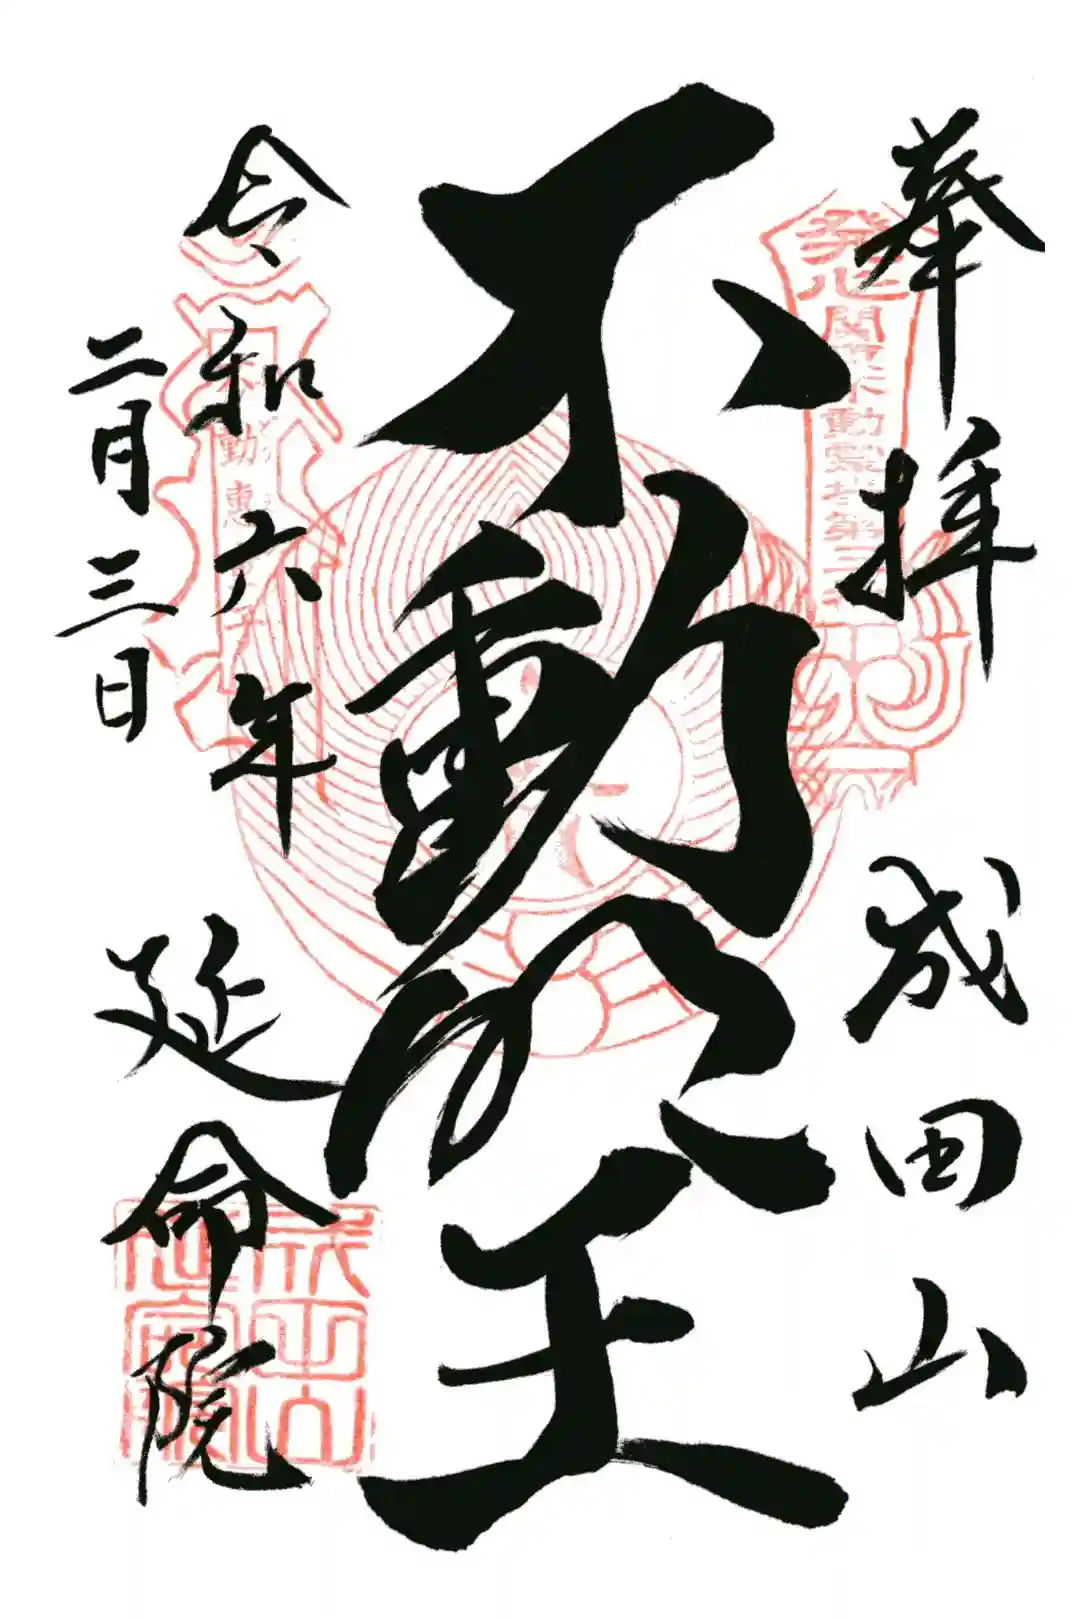 奉拝
成田山
発心
関東不動霊場第三
不動明王
令和六年
二月三日
延命院